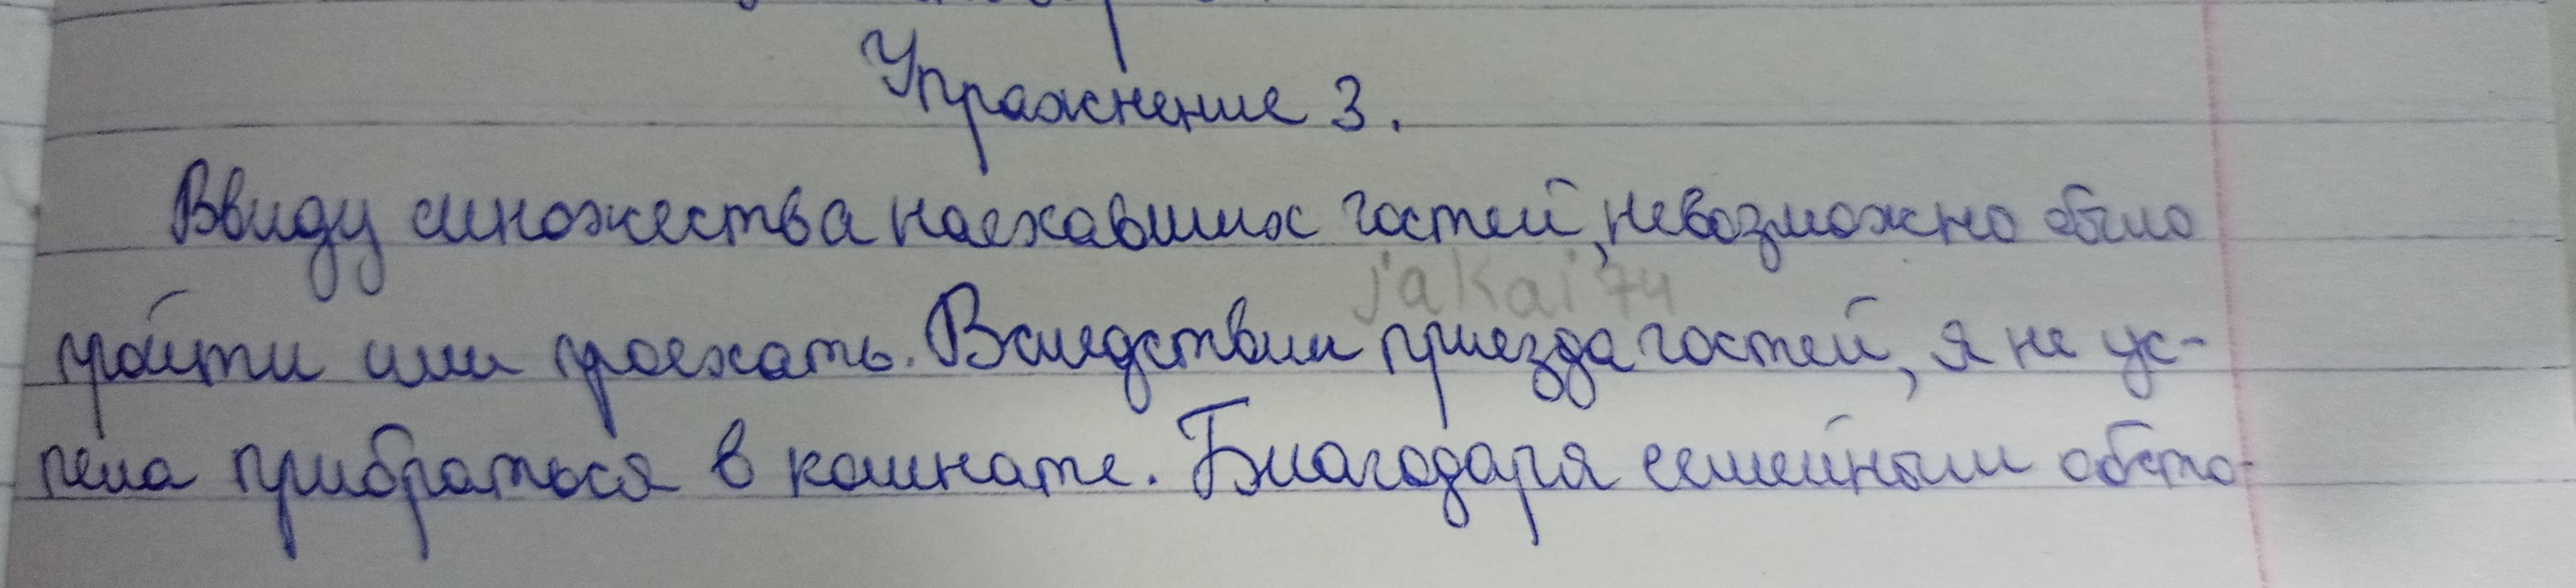 Упражнение 3.
Ввиду множества наехавших гостей, невозможно было
jakai74
пройти или проехать. Вследствии приезда гостей, я не ус-
пела прибраться в комнате. Благодаря семейным обсто-